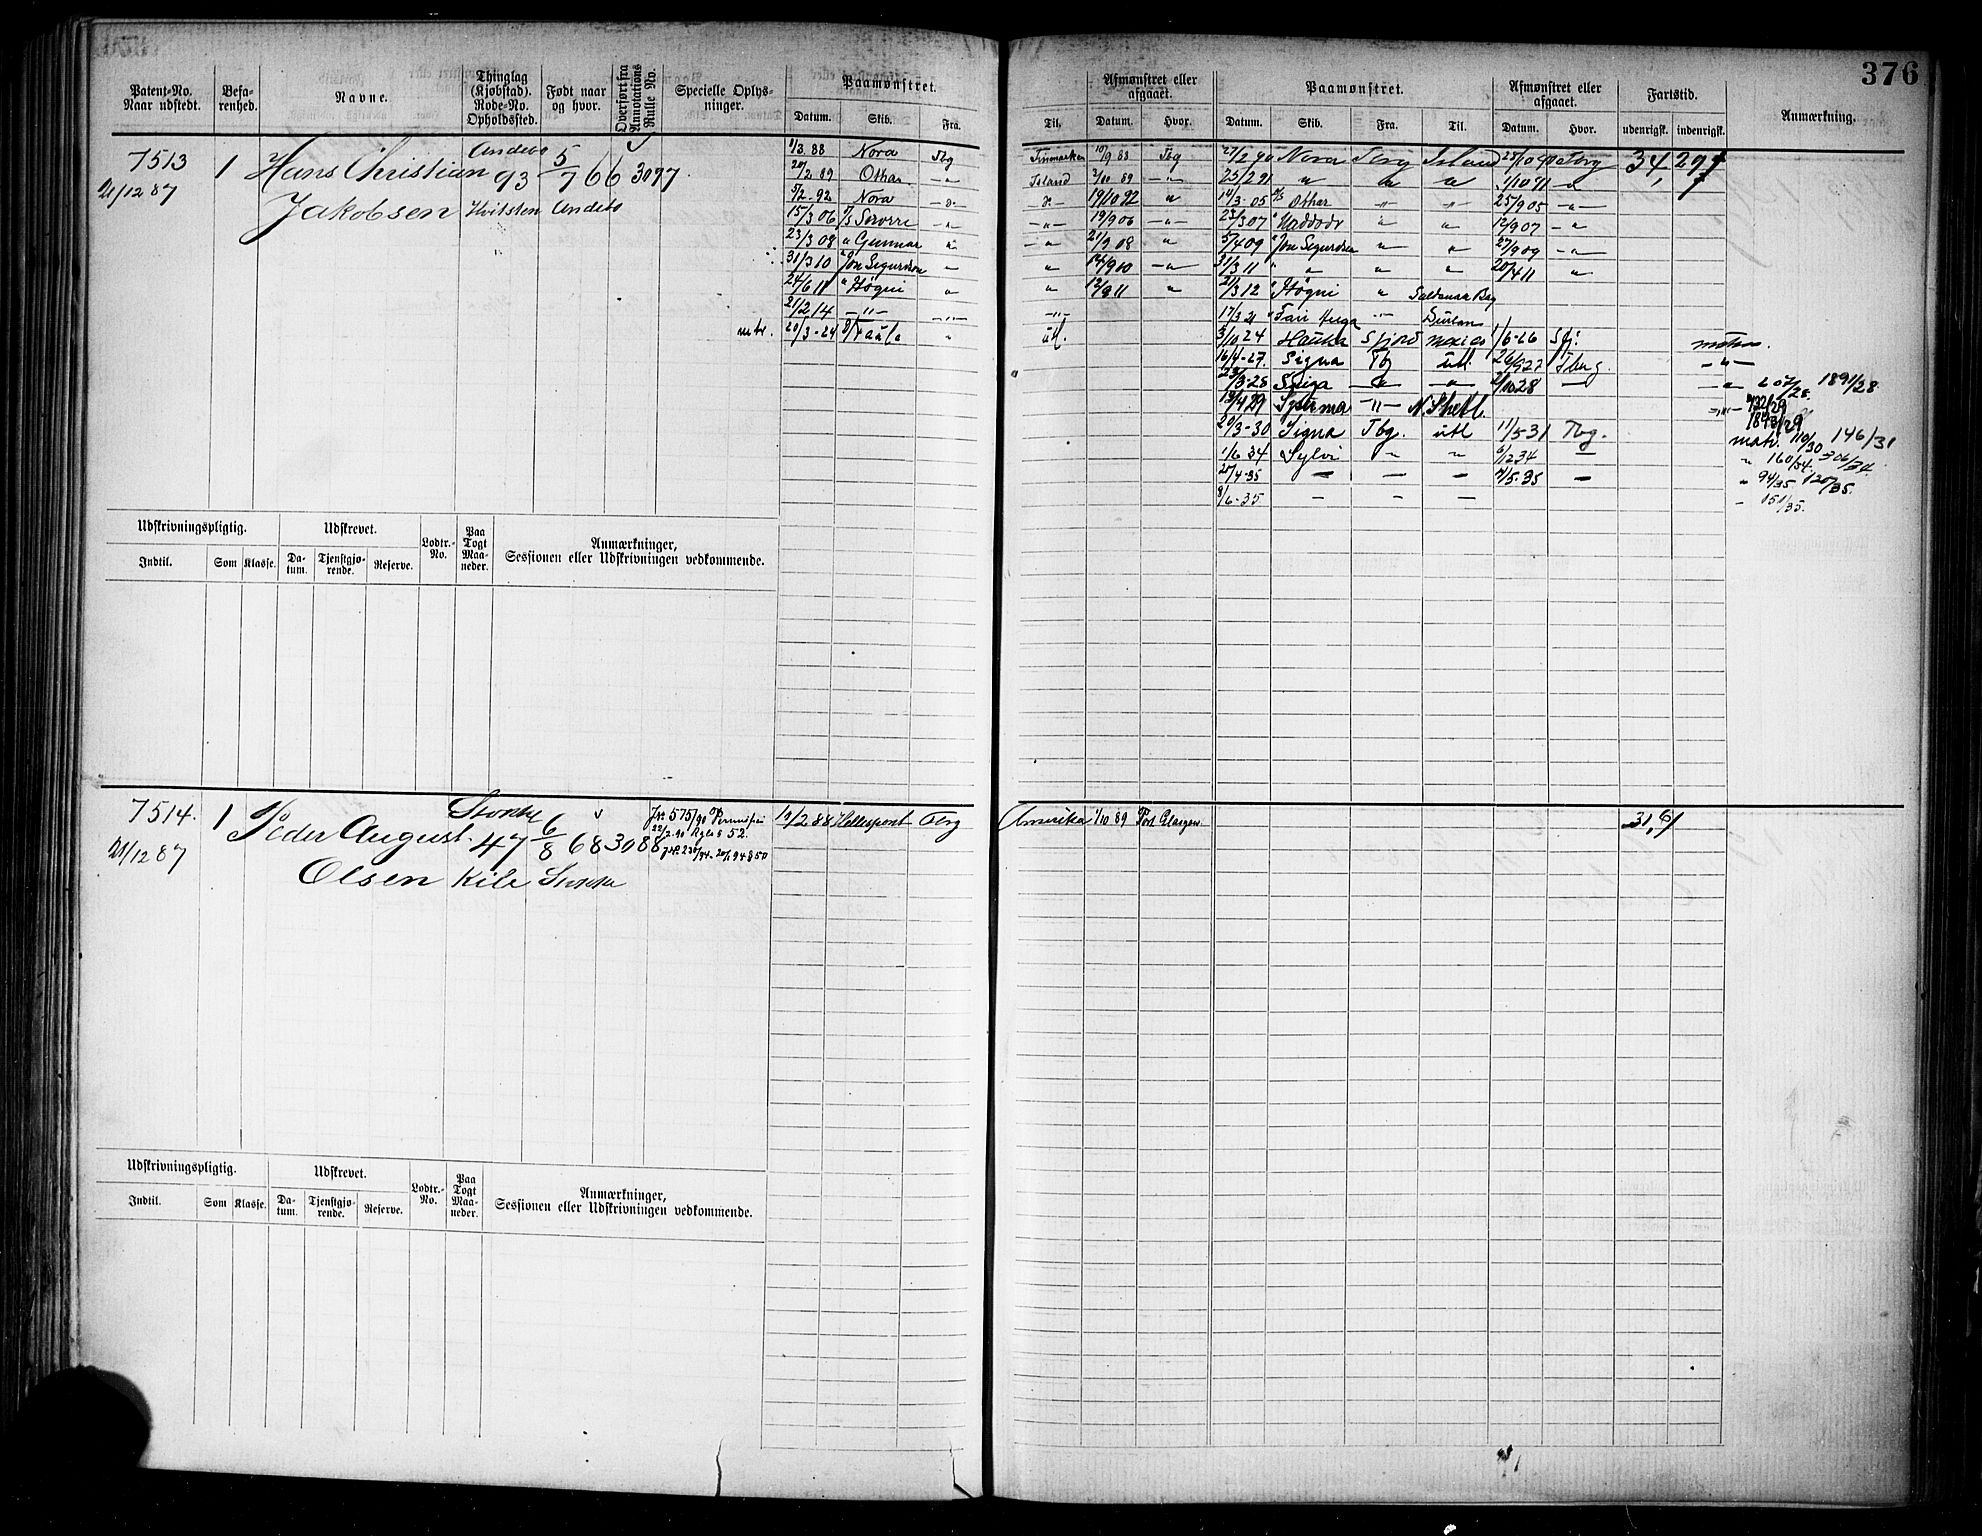 376
Patent-No. Naar udstedt.
Befarenhed.
Navne.
Thinglag (Kjøbstad). Rode-No. Opholdssted.
Født naar og hvor.
Overført fra Annotations Rulle No.
Specielle Oplysninger.
Paamønstret.
Datum. Skib. Fra.
Til.
Afmønstret eller afgaaet.
Datum. Hvor.
Paamønstret.
Datum. Skib. Fra. Til.
Afmønstret eller afgaaet.
Datum. Hvor.
Fartstid.
udenrigsk. indenrigsk.
Anmærkning.
7513
21/12 87
1
Hans Christian
Jakobsen
Andebo
93
Hvitsten
5/7 66
Andebo
3077
1/3 88 Nora Tbg Finmarken 10/9 88 Tbg
20/2 89 Othar -"- Island 2/10 89 -"-
5/2 92 Nora -"- 19/10 92 "
15/3 06 Sverre -"- -"- 19/9 06 -"-
23/3 08 " Gunnar " -"- 21/9 08 "
31/3 10 " Jon Segurdson " " 14/9 10 -"-
24/6 11 " Högni " " 12/8 11 "
21/2 14 -"- -"- -"-
mtr. 20/3-24 " utl.
27/2 90 Nora Tbrg Island 25/10 90 Tbrg 34,
25/2 91 " " " 1/10 91 "
14/3 05 Othar -"- -"- 25/9 05 -"-
23/3 07 " Naddodr " " 12/9 07 -"-
5/4 09 " Jon Segurdson " " 27/9 09 -"-
31/3 11 " " " " 20/4 11 "
21/3 12 " Högni " Saldanha Bay
17/3 21 " Fair Helga -"- Durban
3/10 24 Hauka Sfjord Mexico 1/6-26 Sfj:
16/4-27. Signa Tbg utl 26/9 27 Tberg.
23/3-28 -"- -"- 28 —
13/4 29 Sperma -"- N. Shetl.
20/3-30 Signa Tbg. utl 11/5-31 Tbg.
1/6 34 Sylvi " " 6/12 34 —
20/4-35 — — — 4/5-35 —
8/6-35 — — —
-"- 607/28. 1891/28.
-"- 732/29
1873/29
matr. 110/30 146/31
" 160/34. 306/34
" 94/35 120/35.
" 151/35.
Udskrivningspligtig.
Indtil. Som Klasse.
Udskrevet.
Datum. Tjenstgjørende. Reserve.
Lodtr.-No.
Paa Togt Maaneder.
Anmærkninger,
Sessionen eller Udskrivningen vedkommende.
7514.
21/12 87
1
Peder August
Olsen
Stokke
47
Kile
6/8 68
Stokke
3088
Jr. 575/90
19/2 88 Hellespont Tbrg Amerika 1/10 89 Port Glasgow.
31,
Udskrivningspligtig.
Indtil. Som Klasse.
Udskrevet.
Datum. Tjenstgjørende. Reserve.
Lodtr.-No.
Paa Togt Maaneder.
Anmærkninger,
Sessionen eller Udskrivningen vedkommende.